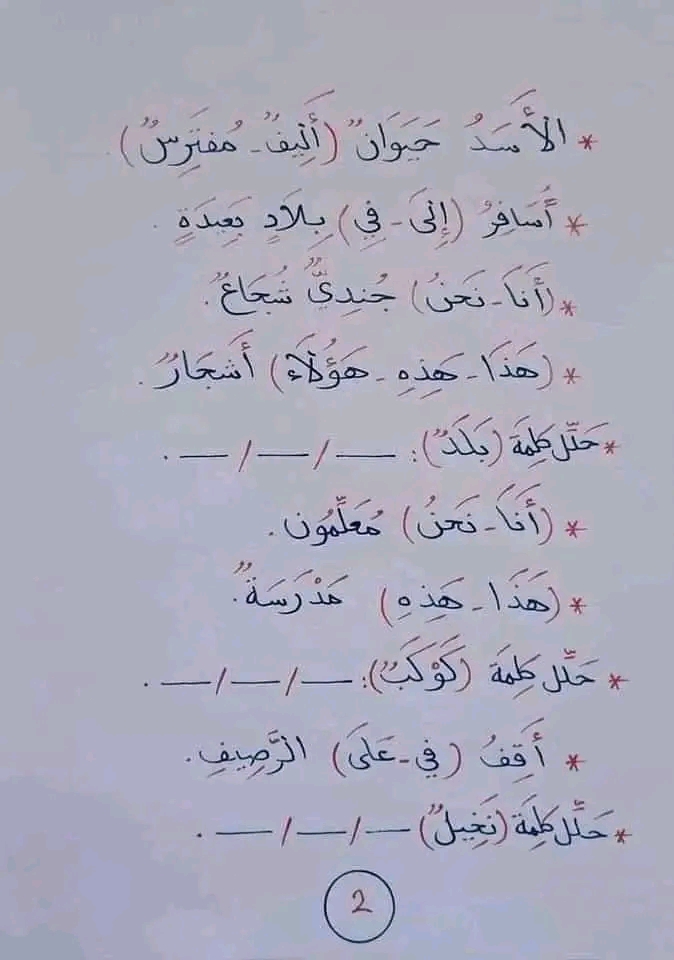 * الأَسَدُ حَيَوَانٌ (أَلِيفٌ - مُفتَرِسٌ).
* أُسَافِرُ (إِلَى - فِي) بِلَادٍ بَعِيدَةٍ.
* (أَنَا - نَحنُ) جُندِيٌّ شُجَاعٌ.
* (هَذَا - هَذِهِ - هَؤُلَاءِ) أَشجَارٌ.
* حَلِّل كَلِمَة (بَلَدٌ): — / — / — .
* (أَنَا - نَحنُ) مُعَلِّمُون.
* (هَذَا - هَذِهِ) مَدْرَسَةٌ.
* حَلِّل كَلِمَة (كَوْكَبٌ): — / — / — .
* أَقِفُ (فِي - عَلَى) الرَّصِيفِ.
* حَلِّل كَلِمَة (نَخِيلٌ) — / — / — .
2